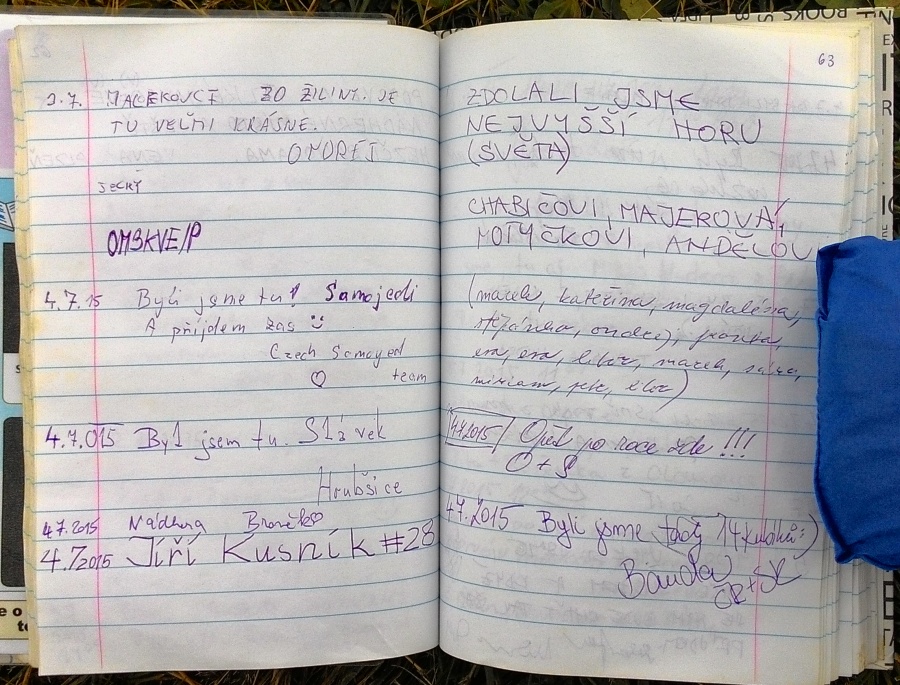 3.7. MACEKOVCI ZO ŽILINY. JE
TU VEĽMI KRÁSNE.
JECKÝ
OM3KVE/P
4.7.15 Byli jsme tu Samojedi
A příjdem zas
Czech Samoyed
team
4.7.015 Byl jsem tu. Slávek
Hrubšice
4.7.2015 Nádhera
4.7.2015 Jiří Kusník #28
63
ZDOLALI JSME
NEJVYŠŠÍ HORU
(SVĚTA)
CHABIČOVI, MAJEROVÁ,
MOTYČKOVI, ANDĚLOVI
(marek, kateřina, magdaléna,
štěpánka, ondřej),
eva, eva, libor, marek,
miriam, petr, libor)
4.7.2015 Opět po roce zde !!!
O + S
4.7.2015 Byli jsme tady 14 kulíků :)
ČR + SK